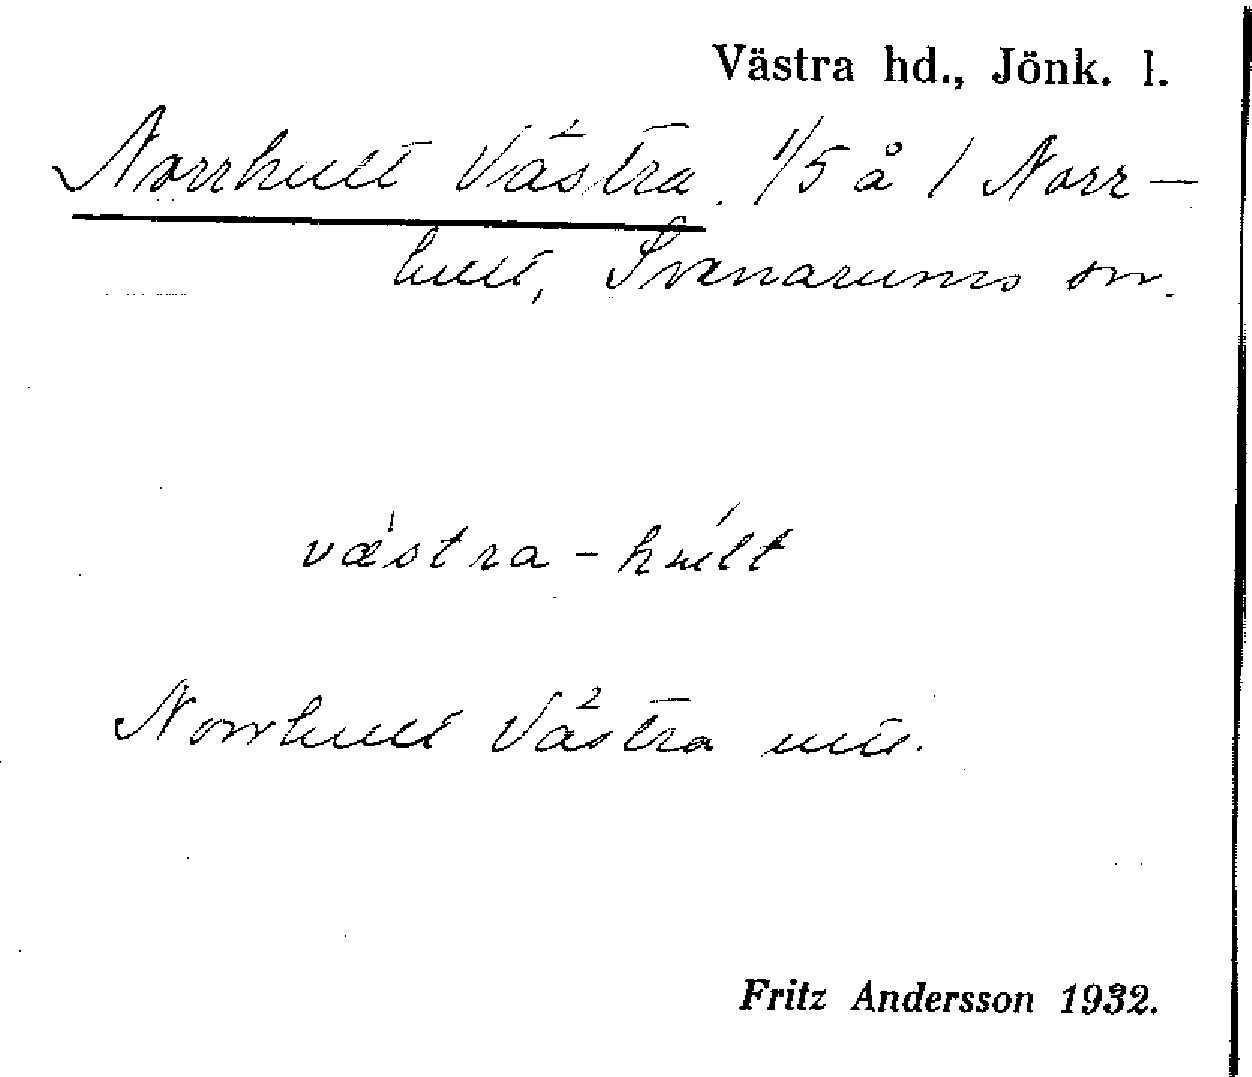 Västra hd., Jönk. l.
Norrhult Västra. 1/5 å 1 Norr-
hult, Svenarums sn.
vǽstra-hú́lt
Norrhult Västra
Fritz Andersson 1932.